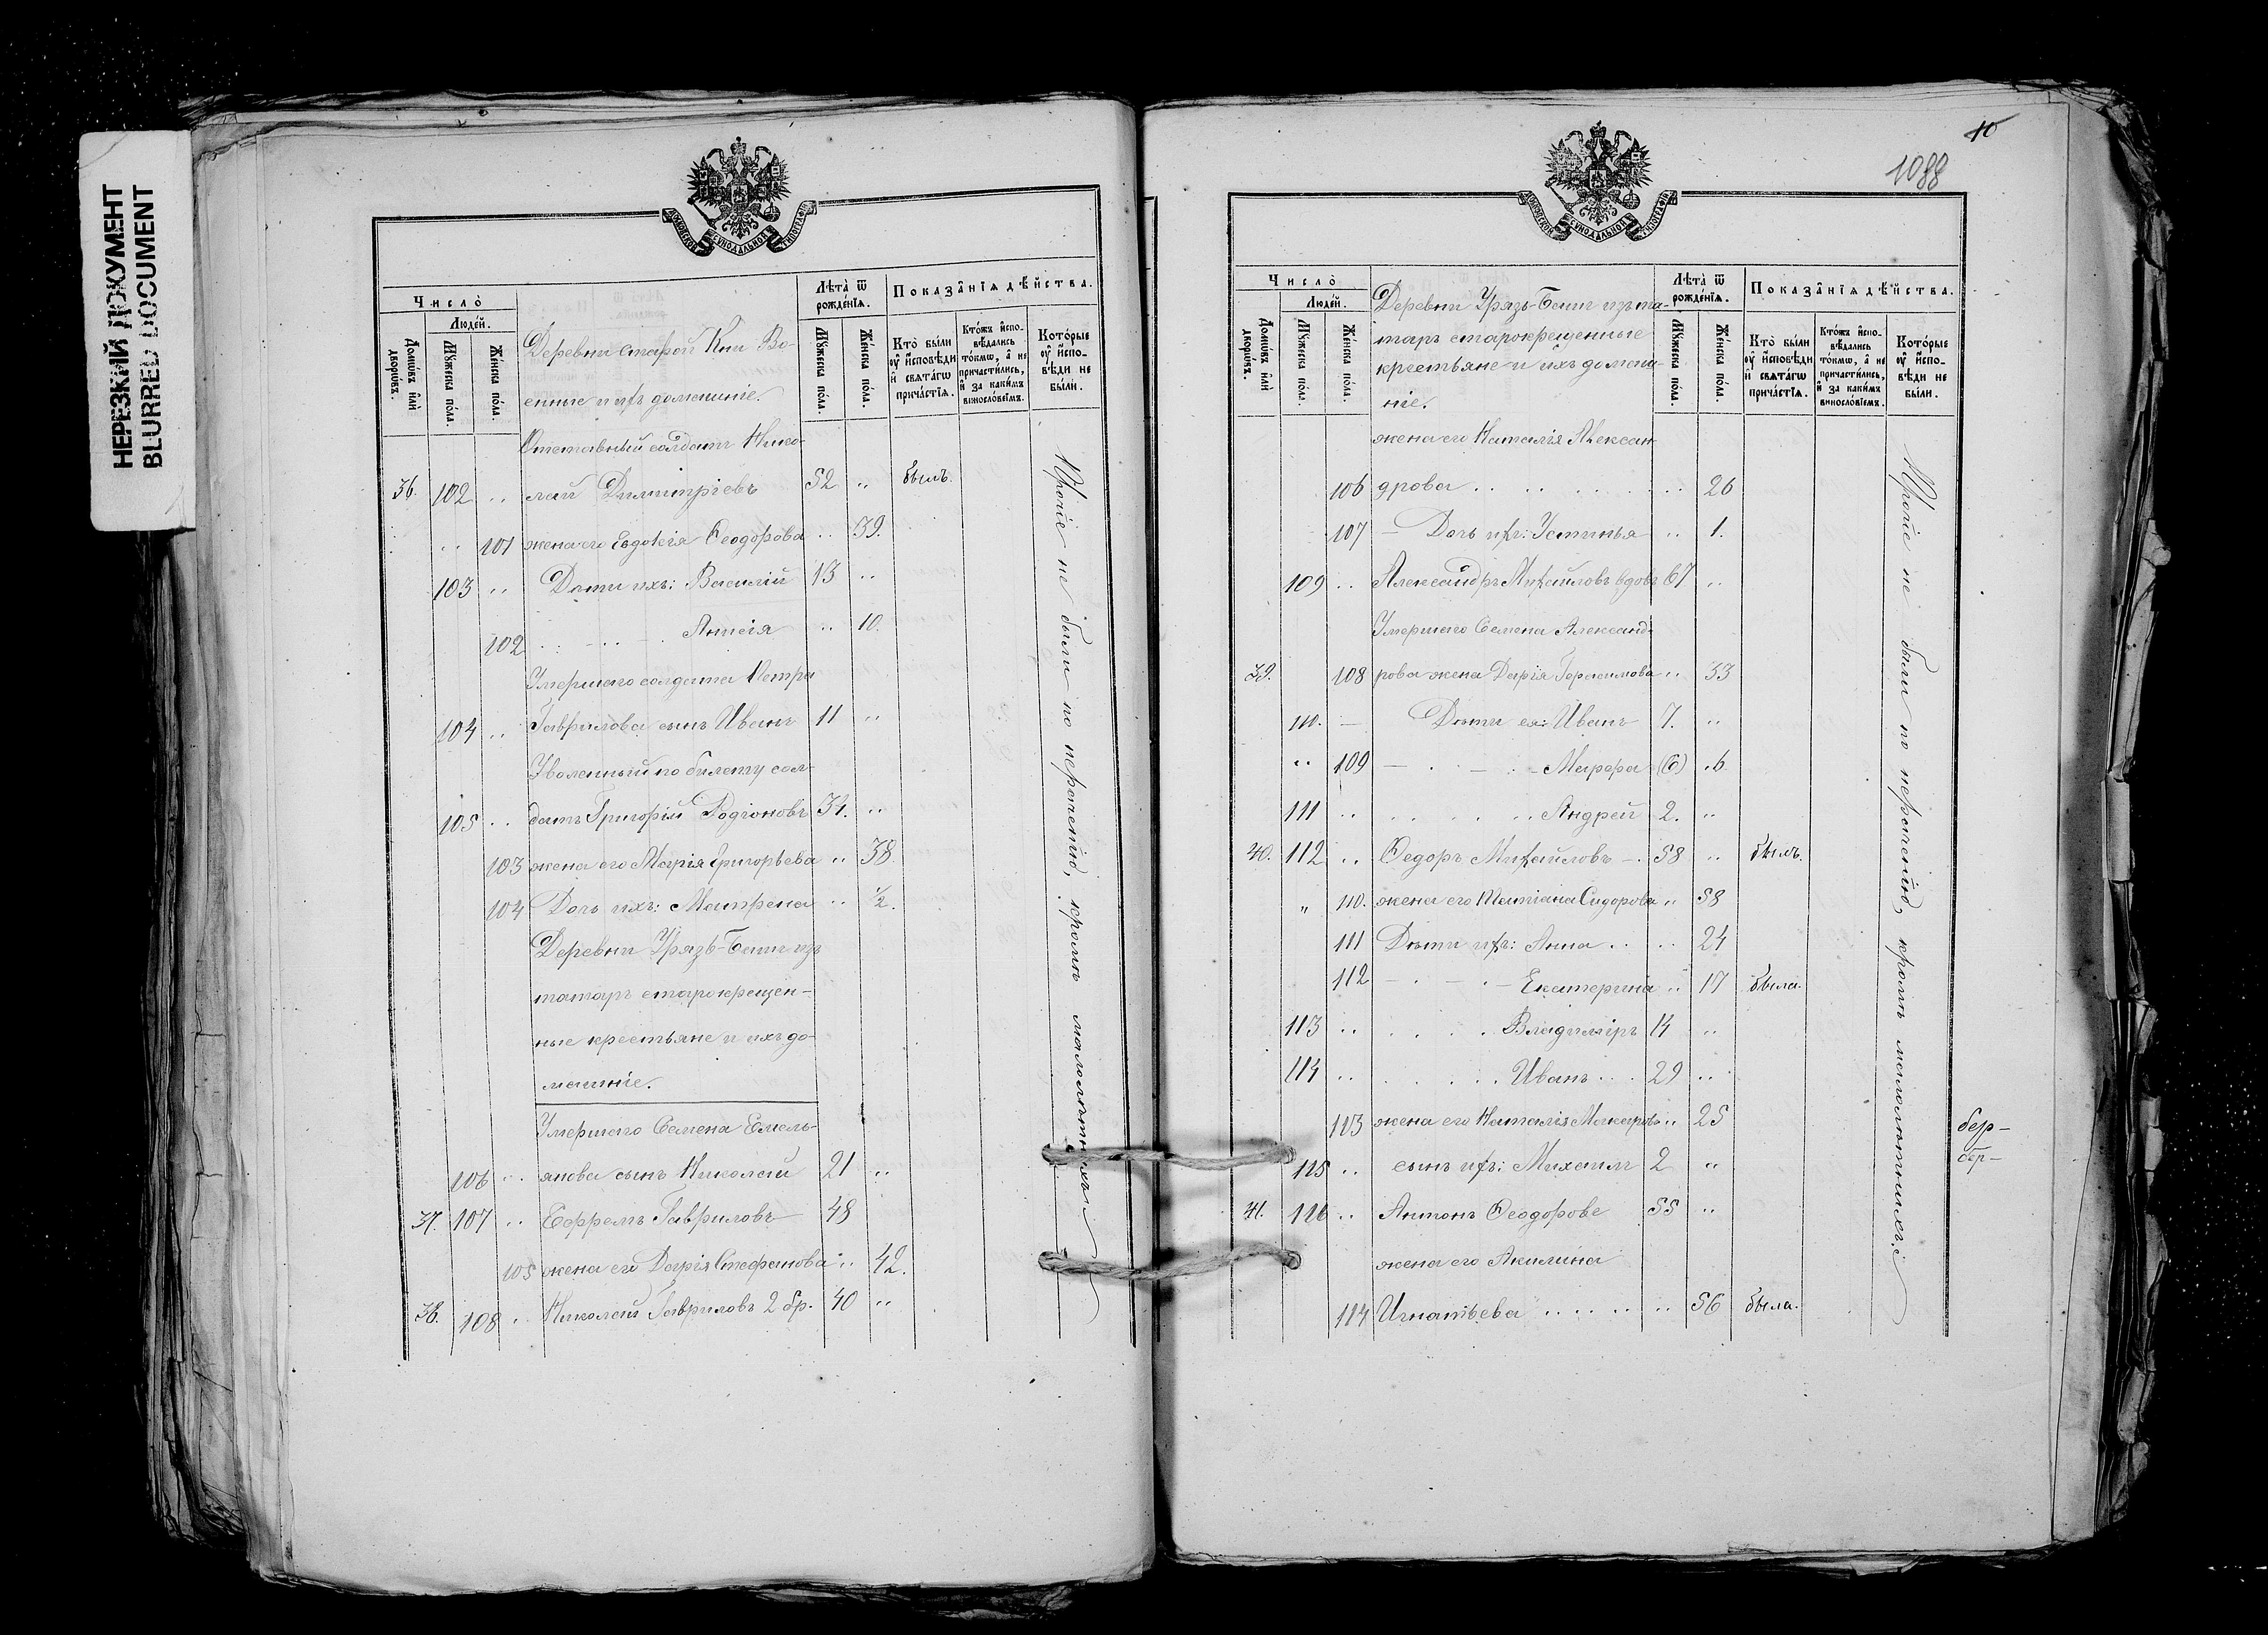 НЕРЕЗКИЙ ДОКУМЕНТ
BLURRED DOCUMENT
МОСКОВСКОЙ СѴНОДАЛЬНОЙ ТИПОГРАФІИ
Число̀
Домѡвъ и҆лѝ дворѡвъ.
Люде́й.
Мꙋ́жеска по́ла.
Же́нска по́ла.
Деревни Старой Кни Во-
енные и ихъ домашніе.
Лѣта̀ ѿ рожде́нїѧ.
Мꙋ́жеска по́ла.
Же́нска по́ла.
Показа̑нїѧ дѣ́йства.
Кто̀ бы́ли ᲂу҆ и҆сповѣ́ди и҆ свѧта́гѡ прича́стїѧ.
Кто́жъ и҆спо-вѣ́дались то́кмѡ, а҆ не причасти́лись, и҆ за каки́мъ винослові́емъ.
Кото́рые ᲂу҆ и҆спо-вѣ́ди не бы́ли.
Отставный солдатъ Нико-
36. 102 .. лай Димитріевъ 52 .. былъ.
.. 101 жена его Евдокія Ѳеодорова .. 39.
103 .. Дѣти ихъ: Василій 13 ..
102 Анисія .. 10.
Умершаго солдата Петра
104 .. Гаврилова сынъ Иванъ 11 ..
Уволенный по билету сол-
105 .. датъ Григорій Родіоновъ 34. ..
103 жена его Марія Григорьева .. 38
104 Дочь ихъ: Матрена .. 1/2.
Деревни Урязь-Баш изъ
татаръ старокрещен-
ные крестьяне и ихъ до-
машніе.
Умершаго Семена Емель-
106 .. янова сынъ Николай 21 ..
37. 107 .. Ефремъ Гавриловъ 48
105 жена его Дарія Стефанова .. 42.
38. 108 . Николай Гавриловъ 2 бр. 40 ..
Прочіе не были по нераченію, кромѣ малолѣтнихъ.
10
1088
МОСКОВСКОЙ СѴНОДАЛЬНОЙ ТИПОГРАФІИ
Число̀
Домѡвъ и҆лѝ дворѡвъ.
Люде́й.
Мꙋ́жеска по́ла.
Же́нска по́ла.
Деревни Урязь-Баш изъ та-
таръ старокрещенные
крестьяне и ихъ домаш-
ніе.
Лѣта̀ ѿ рожде́нїѧ.
Мꙋ́жеска по́ла.
Же́нска по́ла.
Показа̑нїѧ дѣ́йства.
Кто̀ бы́ли ᲂу҆ и҆сповѣ́ди и҆ свѧта́гѡ прича́стїѧ.
Кто́жъ и҆спо-вѣ́дались то́кмѡ, а҆ не причасти́лись, и҆ за каки́мъ винослові́емъ.
Кото́рые ᲂу҆ и҆спо-вѣ́ди не бы́ли.
жена его Наталія Алексан-
106 дрова .. .. 26
107 — Дочь ихъ: Устинья .. 1.
109 .. Александръ Михайловъ вдовъ 67 ..
Умершаго Семена Александ-
39. 108 рова жена Дарія Герасимова .. 33
110. — Дѣти ея: Иванъ 7. ..
.. 109 — Марфа (6) .6
111 .. Андрей 2. ..
40. 112 .. Ѳедоръ Михайловъ — 58 .. былъ.
„ 110. жена его Татіана Сидорова .. 58
111 Дѣти ихъ: Анна .. .. 24
112 — Екатерина .. 17 была.
113 .. Владиміръ 14 ..
114 .. Иванъ .. 29 ..
113 жена его Наталія Макаров .. 25
115 .. сынъ ихъ: Михаилъ 2 ..
41. 116 .. Антонъ Ѳеодорове 55 ..
жена его Акилина
114 Игнатьева .. .. 56 была.
Прочіе не были по нераченію, кромѣ малолѣтнихъ.
бер-
бер-